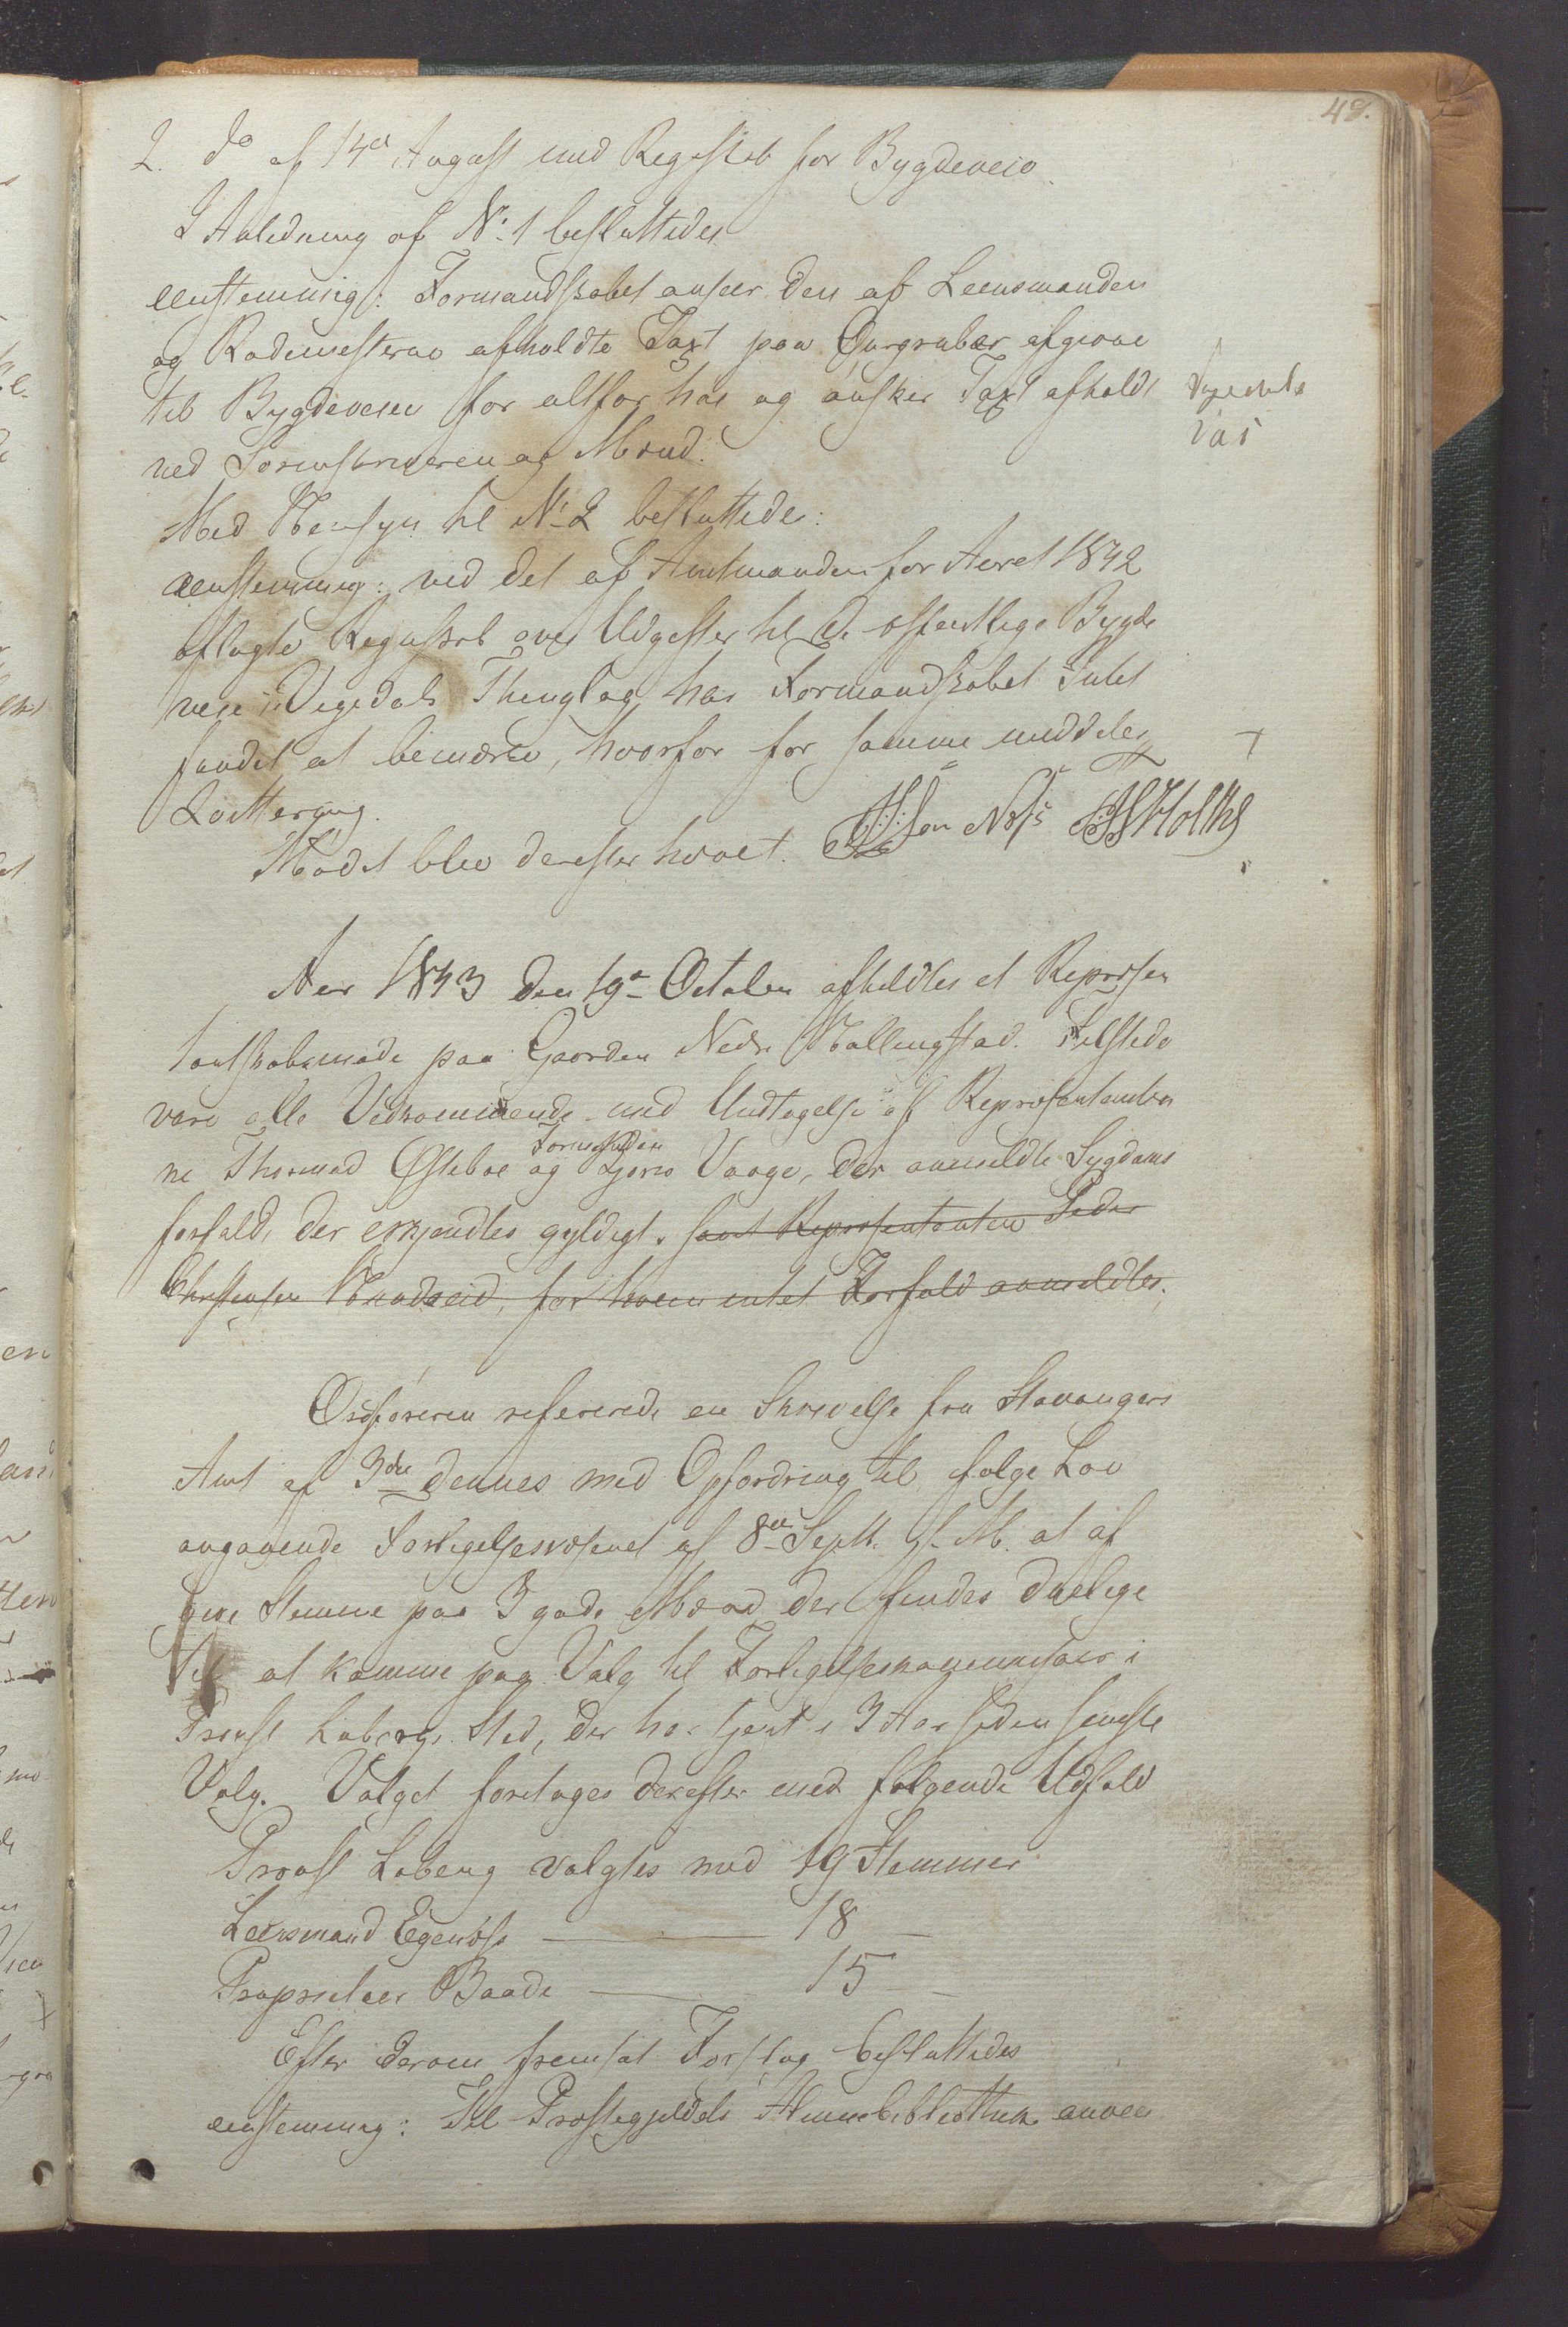 48.
2. do af 14de August med Regnskab for Bygdeveie
I Anledning af No 1 besluttedes
eenstemmig: Formandskabet anseer den af Leensmanden
og Rodemesterne afholdte Taxt paa Øurgruber afgivne
til Bygdeveien for altfor høi og ønsker Taxt afholdt
ved Sorenskriveren og Mænd.
Vigedals
Vei
Med Hensyn til No 2 besluttedes:
eenstemmig: ved det af Amtmanden for Aaret 1842
aflagte Regnskab over Udgifter til de offentlige Bygde
veie i Vigedals Thinglag har Formandskabet Intet
fundet at bemærke, hvorfor for samme meddeles
Qvittering.
Mødet blev derefter hævet.
Aar 1843 den 19de October afholdtes et Repræsen
tantskabsmøde paa Gaarden Nedre Hallingstad. Tilstede
vare alle Vedkommende med Undtagelse af Repræsentanter
ne Thormod Østeboe og Formanden Gjøris Vaage, der anmeldte Sygdoms
forfald, der erkjendtes gyldigt. samt Repræsentanten Peder
Christensen, for hvem intet Forfald anmeldtes.
Ordføreren refererede en Skrivelse fra Stavangers
Amt af 3die dennes med Opfordring til ifølge Lov
angaaende Forligelsesvæsenet af 8de Septb. f. M. at af
give Stemme paa 3 gode Mænd der findes duelige
til at komme paa Valg til Forligelseskommissair i
Provst Lobergs Sted, der har tjent i 3 Aar siden seneste
Valg. Valget foretoges derefter med følgende Udfald
Provst Loberg valgtes med 19 Stemmer
Leensmand Egenæs — 18 —
Proprietair Baade — 15 —
Efter derom fremsat Forslag besluttedes
eenstemmig: Til Præstegjeldets Almuebibliothek anven